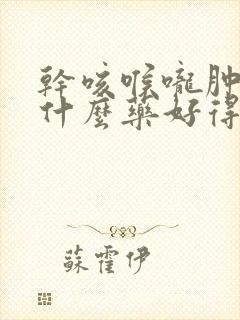 幹咳喉嚨肿
什麼藥好得
蘇霍伊